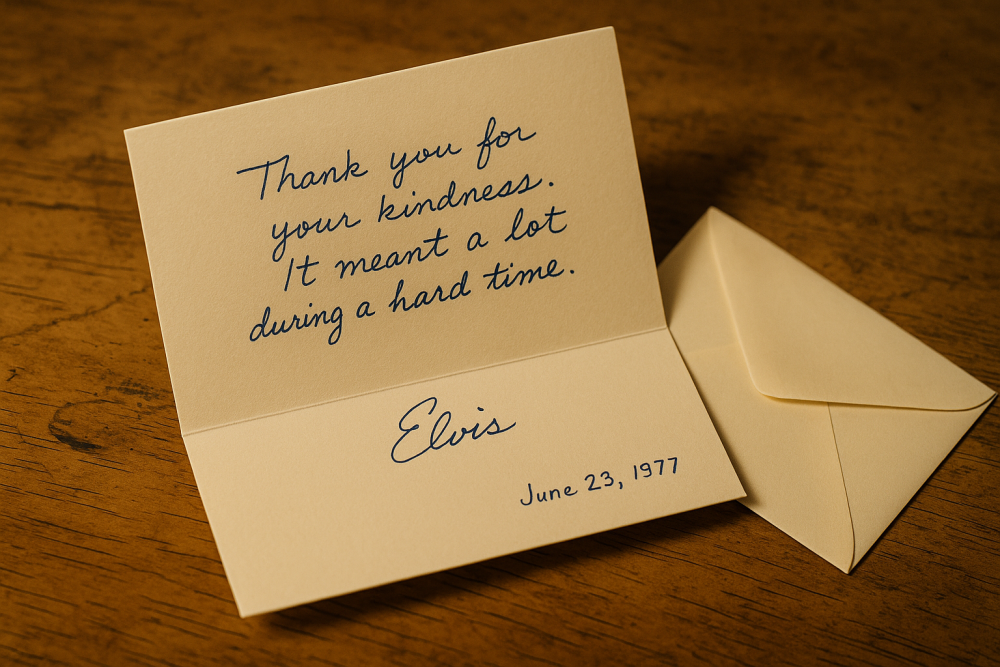 Thank you for
your kindness.
It meant a lot
during a hard time.
Elvis
June 23, 1977